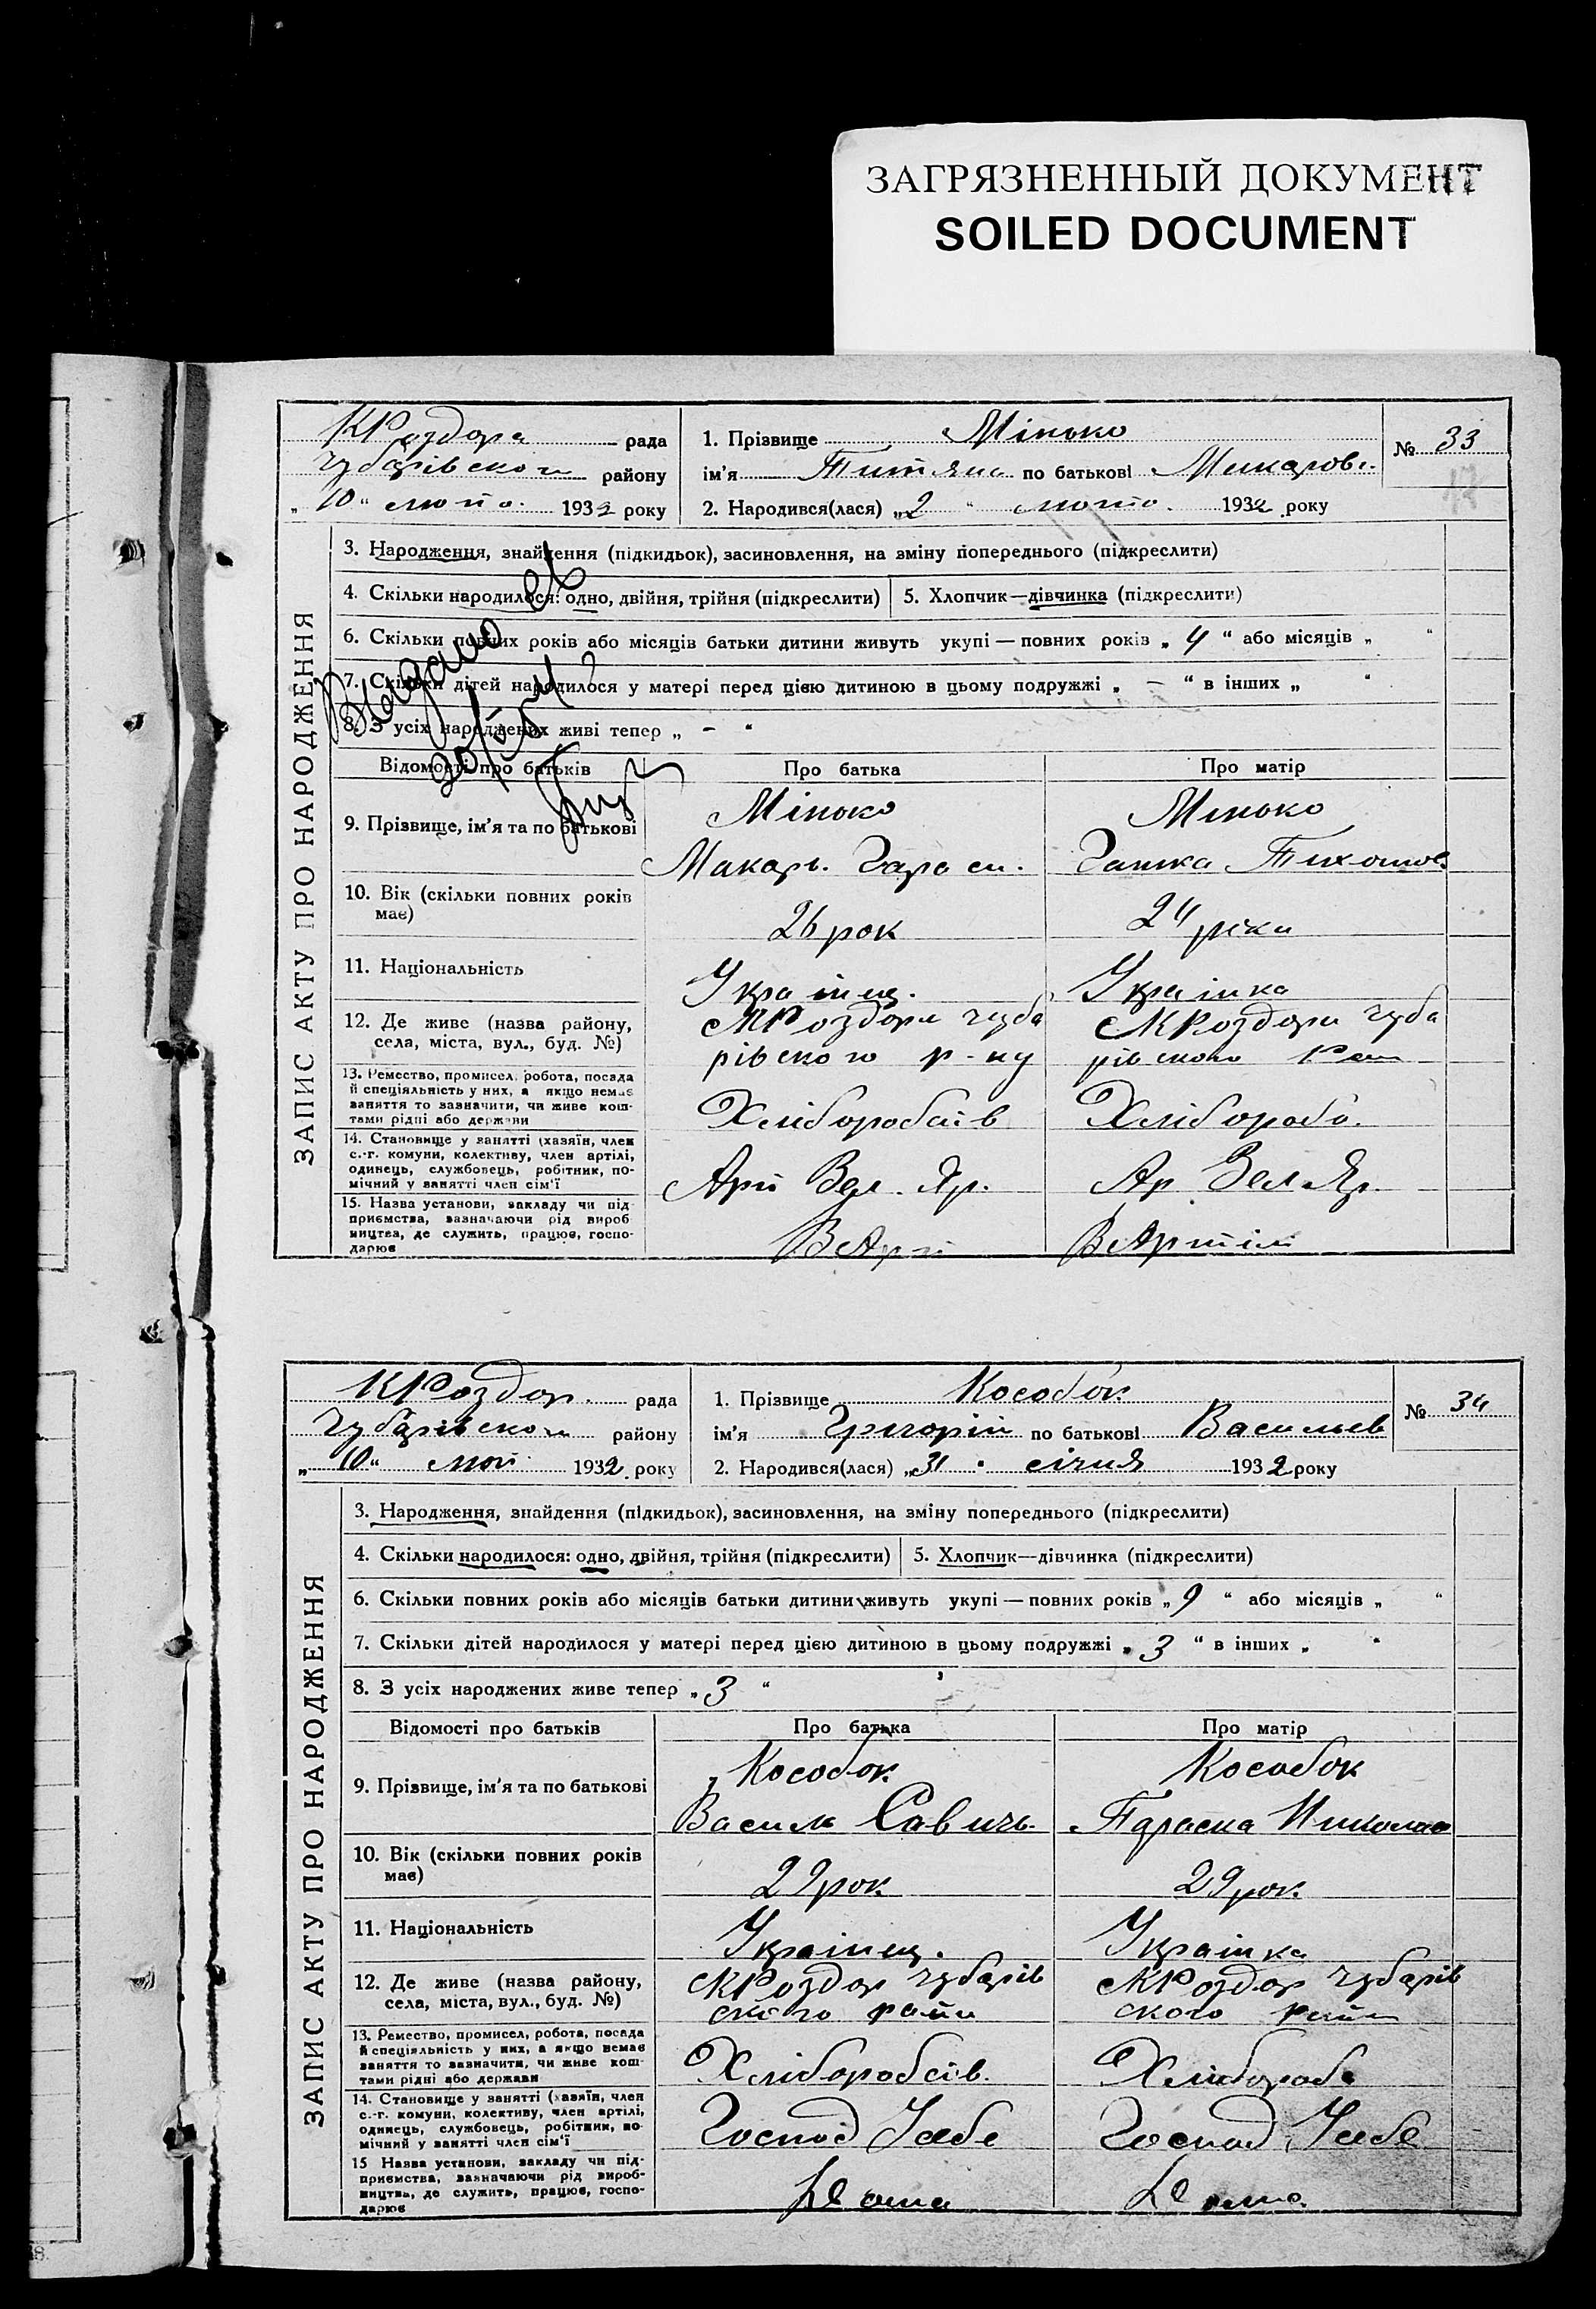 ЗАГРЯЗНЕННЫЙ ДОКУМЕНТ
SOILED DOCUMENT
КРоздора рада
Чубарівского району
„10“ лютого 1932 року
1. Прізвище Мінько
ім'я Титяна по батькові Макаров.
2. Народився(лася) „2“ лютого 1932 року
№ 33
ЗАПИС АКТУ ПРО НАРОДЖЕННЯ
3. Народження, знайдення (підкидьок), засиновлення, на зміну попереднього (підкреслити)
4. Скільки народилося: одно, двійня, трійня (підкреслити)
5. Хлопчик—дівчинка (підкреслити)
6. Скільки повних років або місяців батьки дитини живуть укупі — повних років „4“ або місяців „ “
7. Скільки дітей народилося у матері перед цією дитиною в цьому подружжі „ – “ в інших „ “
8. З усіх народжених живі тепер „ – “
Відомості про батьків Про батька Про матір
9. Прізвище, ім'я та по батькові
Мінько Мінько
Макарь. Гараси. Гашка Тихонов.
10. Вік (скільки повних років
має)
26 рок 24 роки
11. Національність
Українц. Українка
12. Де живе (назва району,
села, міста, вул., буд. №)
КРоздори Чуба КРоздори Чуба
рівского р-ну рівского
13. Ремество, промисел, робота, посада
й спеціяльність у них, а якщо немає
заняття то зазначити, чи живе кош-
тами рідні або держави
Хлібороб Хлібороб.
14. Становище у занятті (хазяїн, член
с.-г. комуни, колективу, член артілі,
одинець, службовець, робітник, по-
мічний у занятті член сім'ї
Арт Вел. Яр. Ар Вел Яр.
15. Назва установи, закладу чи під-
приємства, зазначаючи рід вироб-
ництва, де служить, працює, госпо-
дарює
В Арт В Артілі
КРоздор. рада
Чубарівского району
„10“ лют 1932 року
1. Прізвище Кособок
ім'я Григорій по батькові Васильев
2. Народився(лася) „31“ січня 1932 року
№ 34
ЗАПИС АКТУ ПРО НАРОДЖЕННЯ
3. Народження, знайдення (підкидьок), засиновлення, на зміну попереднього (підкреслити)
4. Скільки народилося: одно, двійня, трійня (підкреслити)
5. Хлопчик—дівчинка (підкреслити)
6. Скільки повних років або місяців батьки дитини живуть укупі — повних років „9“ або місяців „ “
7. Скільки дітей народилося у матері перед цією дитиною в цьому подружжі „3“ в інших „ “
8. З усіх народжених живе тепер „3“
Відомості про батьків Про батька Про матір
9. Прізвище, ім'я та по батькові
Кособок Кособок
Василь Савичь Параска Николае
10. Вік (скільки повних років
має)
29 рок. 29 рок.
11. Національність
Українц. Українка
12. Де живе (назва району,
села, міста, вул., буд. №)
КРоздор Чубарів КРоздор Чубарів
ского райн ского райн
13. Ремество, промисел, робота, посада
й спеціяльність у них, а якщо немає
заняття то зазначити, чи живе кош-
тами рідні або держави
Хлібороб Хлібороб
14. Становище у занятті (хазяїн, член
с.-г. комуни, колективу, член артілі,
одинець, службовець, робітник, по-
мічний у занятті член сім'ї
Господ Усебе Господ Усебе
15 Назва установи, закладу чи під-
приємства, зазначаючи рід вироб-
ництва, де служить, працює, госпо-
дарює
Дома Дома